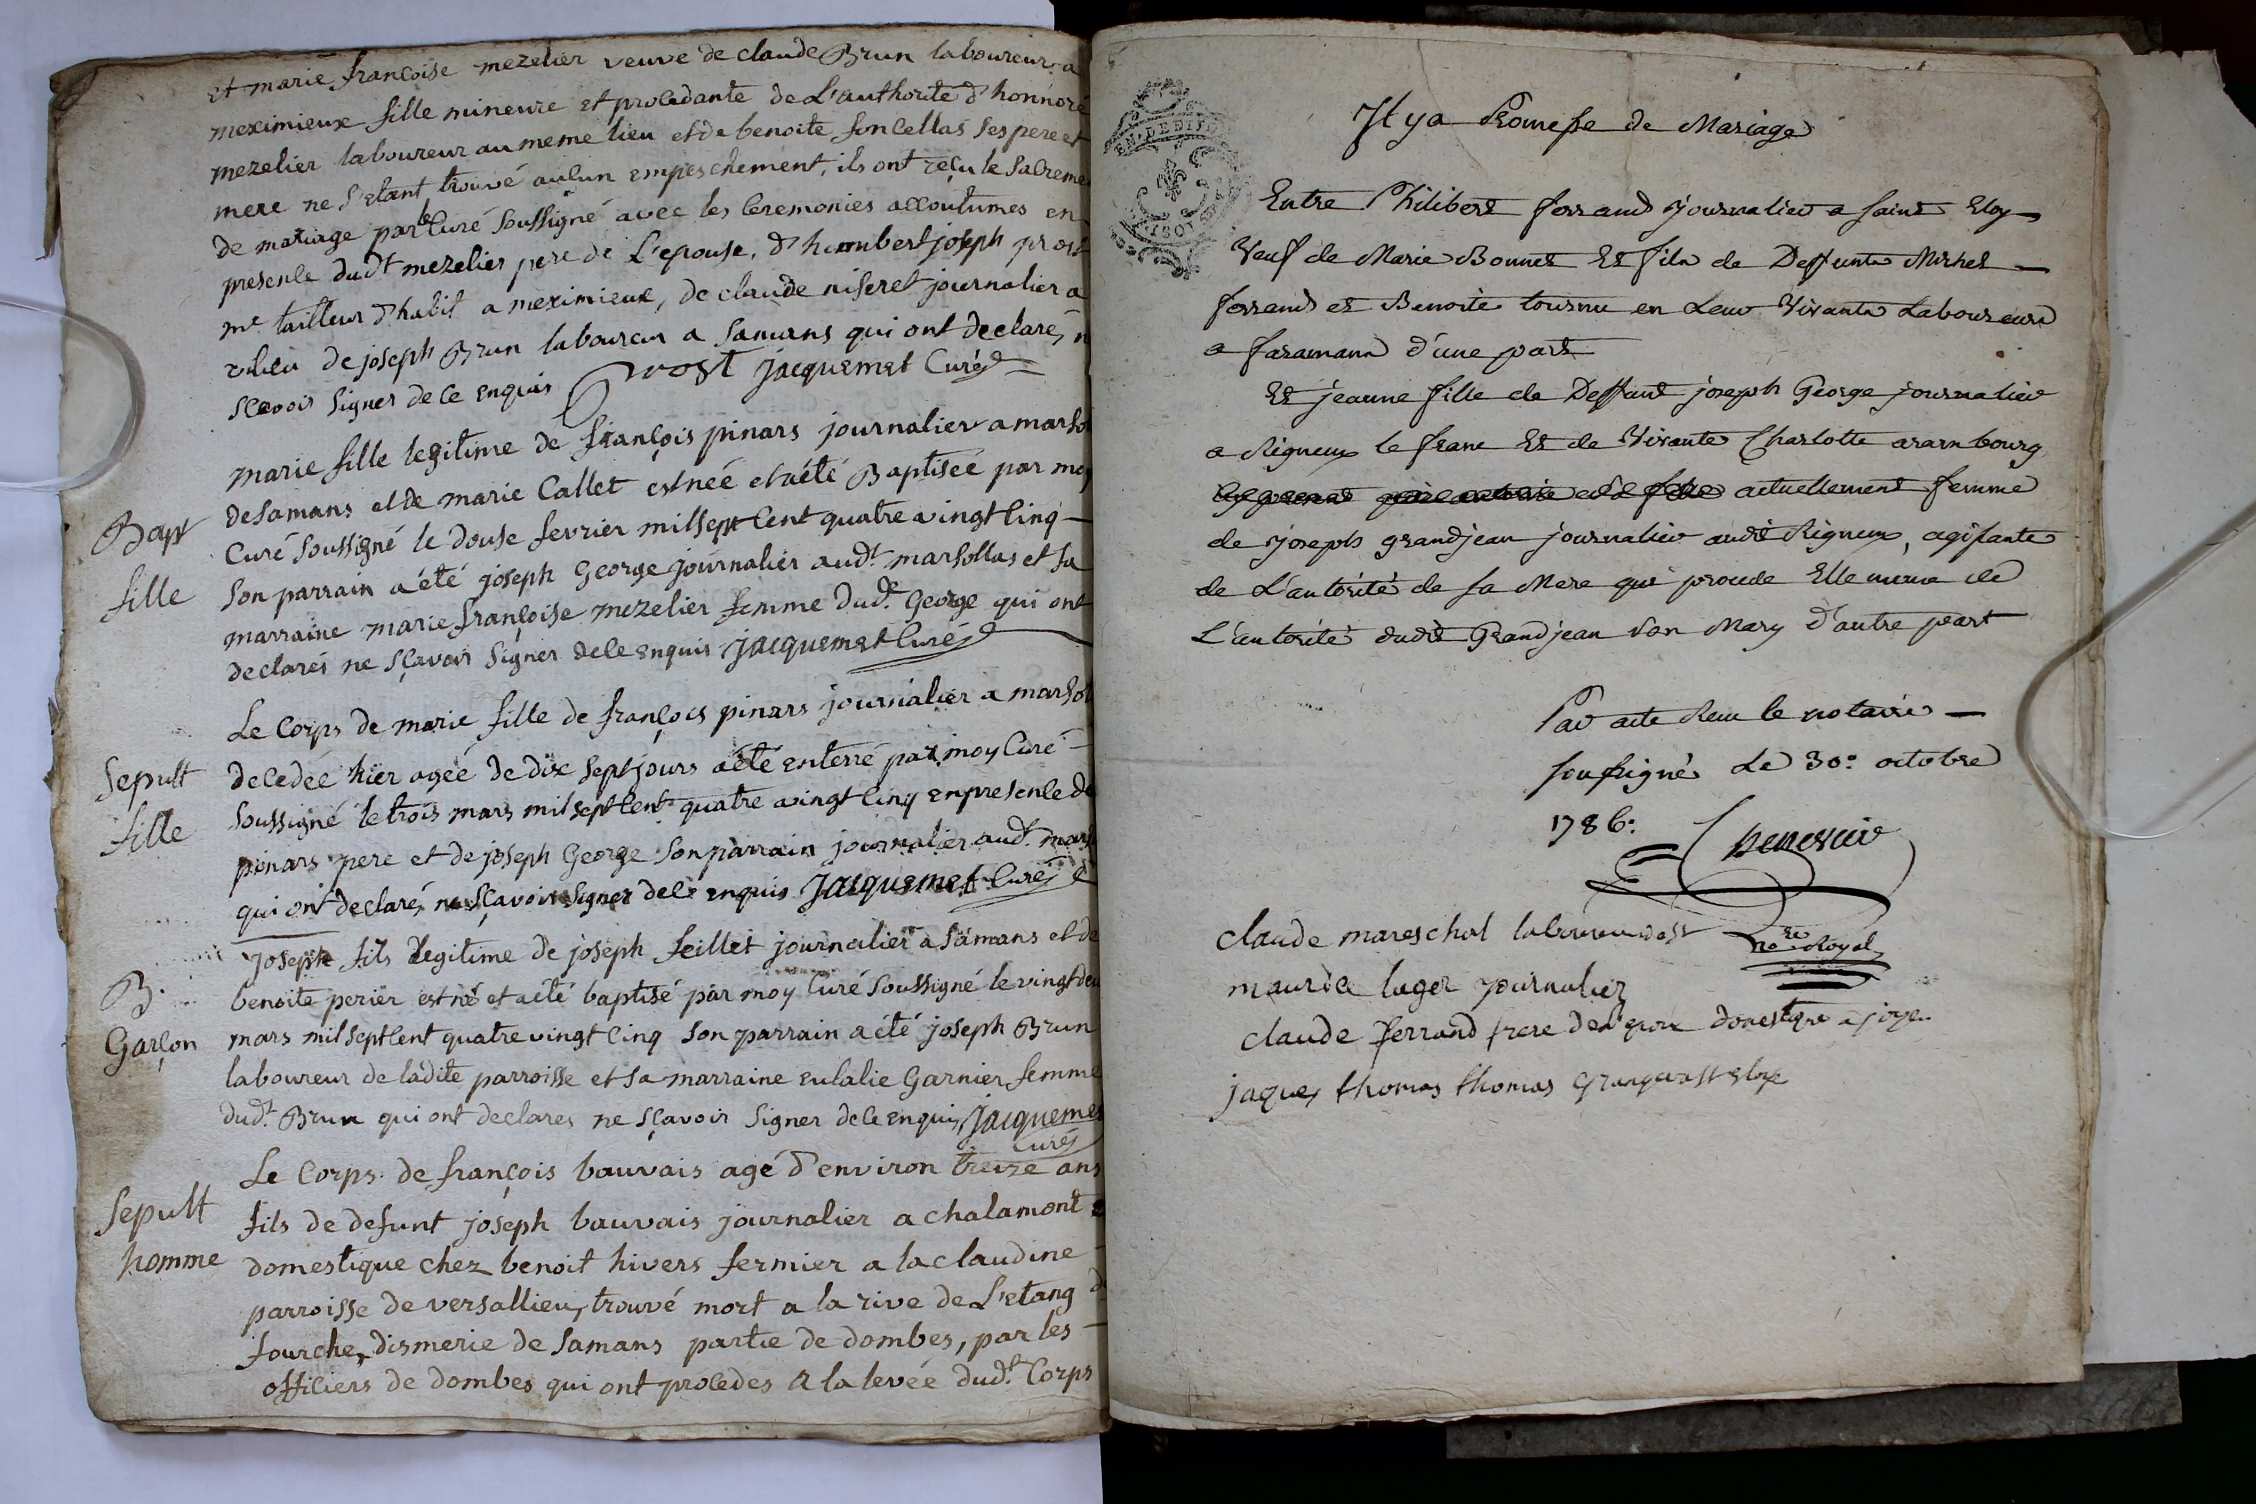 et marie françoise mezelier veuve de claude Brun laboureur a
meximieux fille mineure et procedante de L'authorité d'honnoré
mezelier laboureur au meme lieu et de benoite foncellas ses pere et
mere ne s'etant trouvé aucun empeschement, ils ont reçu le sacreme
de mariage par le Curé soussigné avec les ceremonies accoutumés en
presence dudt mezelier pere de L'epouse, d'humbert joseph prost
me tailleur d'habit a meximieux, de claude niseret journalier a
de joseph Brun laboureur a samans qui ont declaré, n
scavoir signer de ce enquis Prost jacquemet Curé
marie fille legitime de françois pinars journalier a marsol
Bapt
fille
de samans et de marie Callet est née et a été Baptisée par moy
Curé soussigné le douse fevrier mil sept cent quatre vingt cinq
son parrain a été joseph George journalier audt marsollas et sa
marraine marie françoise mezelier femme dudt George qui ont
declarés ne sçavoir signer de ce enquis jacquemet Curé
Le Corps de marie fille de françois pinars journalier a marsol
Sepult
fille
decedée hier agée de dix sept jours a été enterré par moy Curé
soussigné le trois mars mil sept cent quatre vingt cinq en presence de
pinars pere et de joseph George son parrain journalier audt mars
qui ont declaré, ne sçavoir signer de ce enquis jacquemet Curé
joseph fils legitime de joseph feillet journalier a samans et de
B.
Garçon
benoite perier est né et a été baptisé par moy Curé soussigné le vingt deu
mars mil sept cent quatre vingt cinq son parrain a été joseph Brun
laboureur de ladite parroisse et sa marraine eulalie Garnier femme
dudt Brun qui ont declares ne sçavoir signer de ce enquis, jacquemet
Curé
Le Corps de françois bauvais agé d'environ treize ans
Sepult
homme
fils de defunt joseph bauvais journalier a chalamont
domestique chez benoit hivers fermier a la claudine
parroisse de versallieu, trouvé mort a la rive de L'etang d
fourche, dismerie de samans partie de dombes, par les
officiers de dombes qui ont procedes a la levée dudt Corps
Il y a Promesse de Mariage
Entre Philibert ferrand journalier a saint Eloy
Veuf de Marie Bonnet Et fils de Deffunts Michel
ferrand et Benoite tournu en Leur Vivants Laboureurs
a faramans d'une part
Et jeanne fille de Deffunt joseph George journalier
a Rigneux le franc Et de Vivante Charlotte arambourg
actuellement femme
de joseph grandjean journalier audit Rigneux, agissante
de L'autorité de sa Mere qui procede Elle meme de
L'autorité dudit Grandjean son Mary d'autre part
Par acte Reçu le notaire
soussigné Le 30e octobre
1786.
Chenevier
nore Royal
claude mareschal laboureur
maurice luger journalier
claude ferrand frere de domestique a
jaques thomas thomas